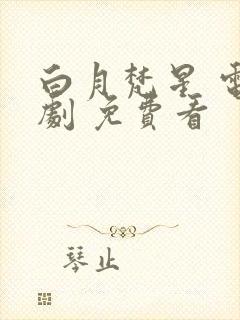 白月梵星 電
劇 免費看
琴止